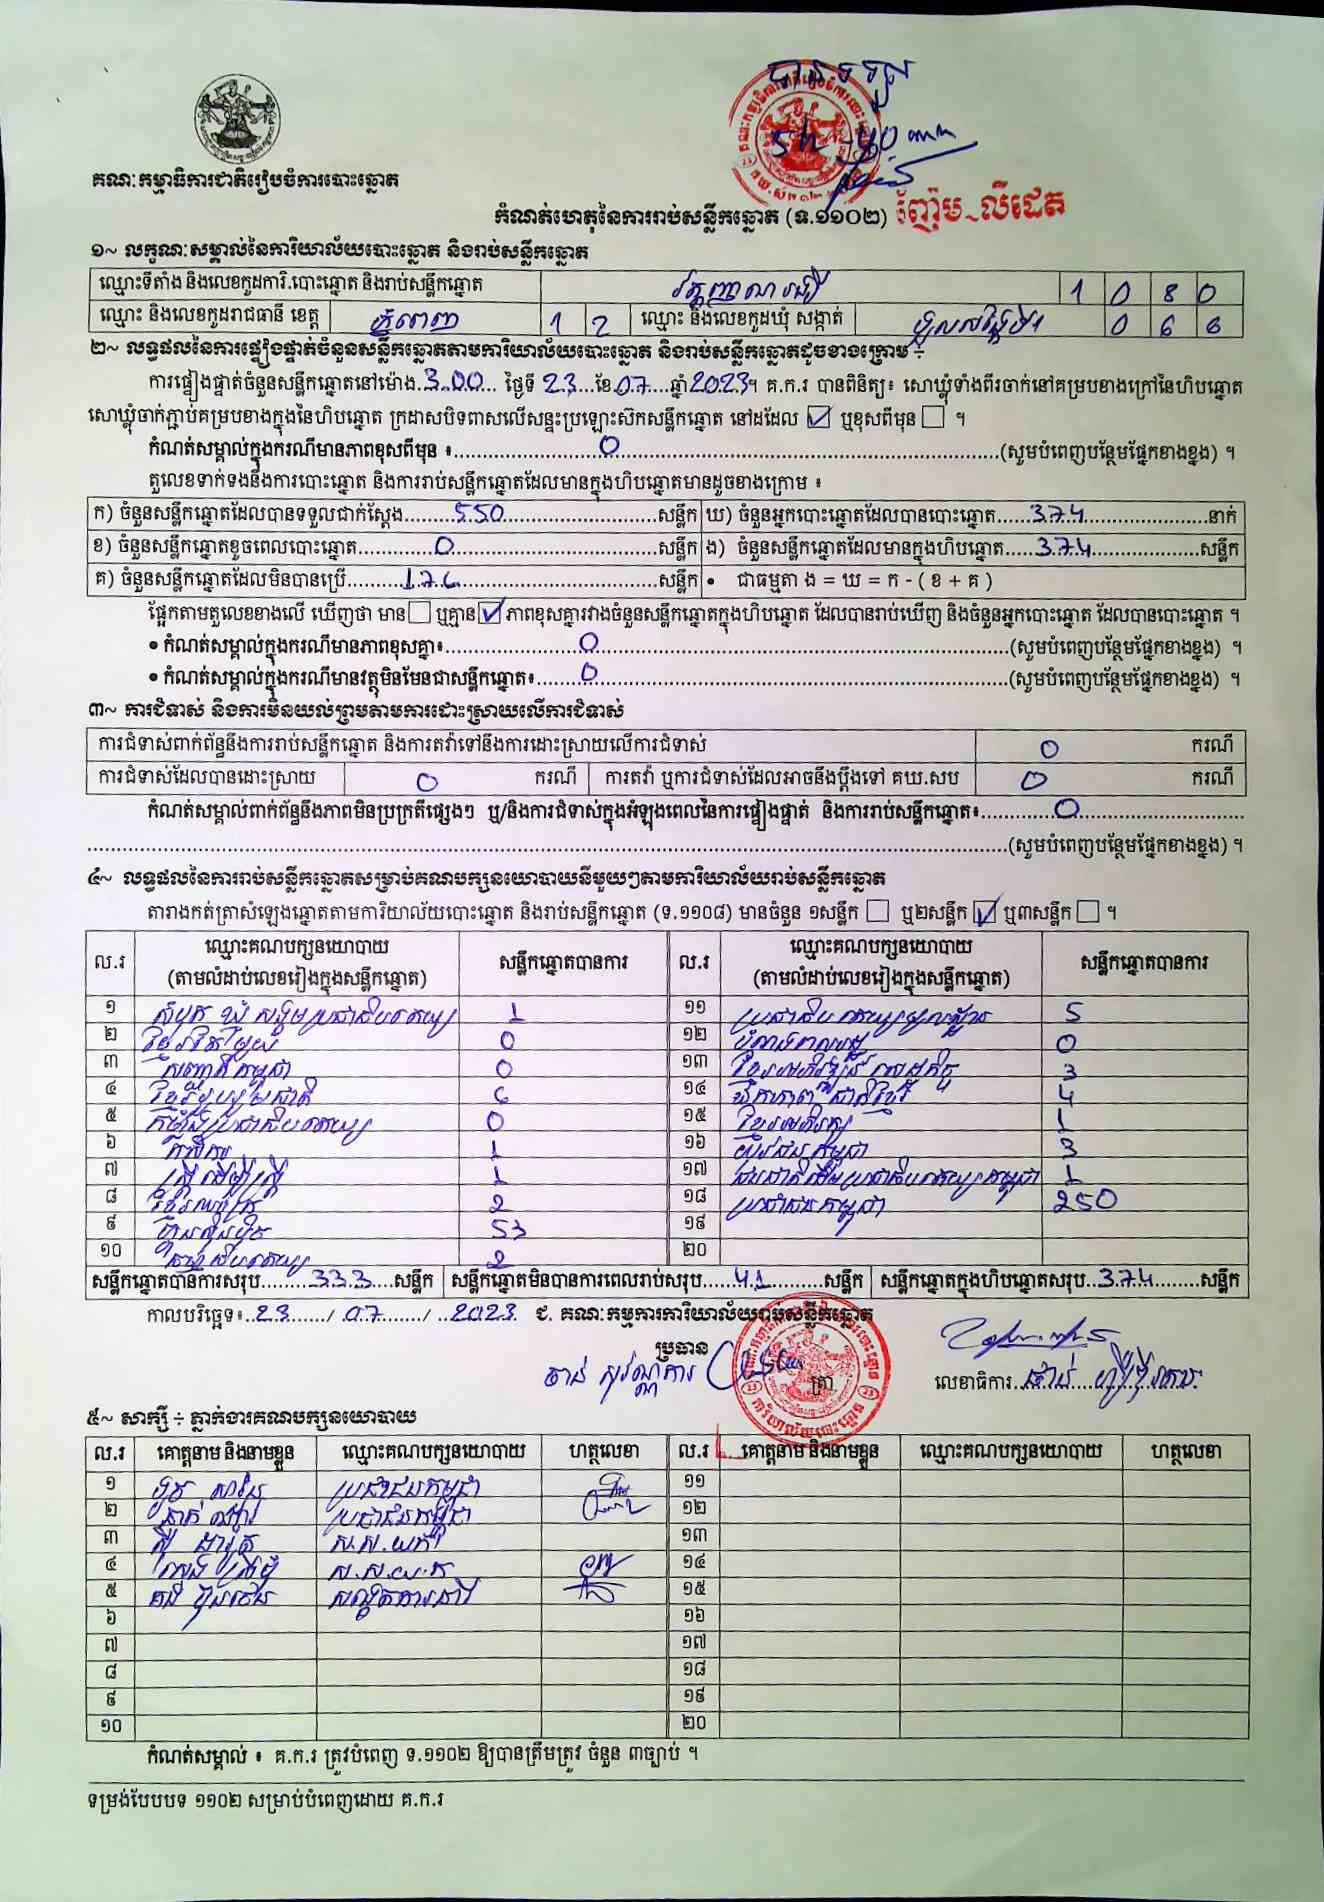 គណៈកម្មាធិការជាតិរៀបចំការបោះឆ្នោត
បានទទួល
5h - 40 នាទី
កំណត់ហេតុនៃការរាប់សន្លឹកឆ្នោត (ទ.១១០២)
ញ៉ែម លីដេត
១~ លក្ខណៈសម្គាល់នៃការិយាល័យបោះឆ្នោត និងរាប់សន្លឹកឆ្នោត
ឈ្មោះទីតាំង និងលេខកូដការិ.បោះឆ្នោត និងរាប់សន្លឹកឆ្នោត វត្តញាណរង្សី 1 0 8 0
ឈ្មោះ និងលេខកូដរាជធានី ខេត្ត ភ្នំពេញ 1 2 ឈ្មោះ និងលេខកូដឃុំ សង្កាត់ ទួលសង្កែទី1 0 6 6
២~ លទ្ធផលនៃការផ្ទៀងផ្ទាត់ចំនួនសន្លឹកឆ្នោតតាមការិយាល័យបោះឆ្នោត និងរាប់សន្លឹកឆ្នោតដូចខាងក្រោម ÷
ការផ្ទៀងផ្ទាត់ចំនួនសន្លឹកឆ្នោតនៅម៉ោង.3.00... ថ្ងៃទី 23...ខែ.07....ឆ្នាំ2023។ គ.ក.រ បានពិនិត្យ៖ សោឃ្លុំទាំងពីរចាក់នៅគម្របខាងក្រៅនៃហិបឆ្នោត
សោឃ្លុំចាក់ភ្ជាប់គម្របខាងក្នុងនៃហិបឆ្នោត ក្រដាសបិទពាសលើសន្ទះប្រឡោះស៊កសន្លឹកឆ្នោត នៅដដែល ☑ ឬខុសពីមុន ☐ ។
កំណត់សម្គាល់ក្នុងករណីមានភាពខុសពីមុន ៖........0........(សូមបំពេញបន្ថែមផ្នែកខាងខ្នង) ។
តួលេខទាក់ទងនឹងការបោះឆ្នោត និងការរាប់សន្លឹកឆ្នោតដែលមានក្នុងហិបឆ្នោតមានដូចខាងក្រោម ៖
ក) ចំនួនសន្លឹកឆ្នោតដែលបានទទួលជាក់ស្តែង........550........សន្លឹក ឃ) ចំនួនអ្នកបោះឆ្នោតដែលបានបោះឆ្នោត......374........នាក់
ខ) ចំនួនសន្លឹកឆ្នោតខូចពេលបោះឆ្នោត........0........សន្លឹក ង) ចំនួនសន្លឹកឆ្នោតដែលមានក្នុងហិបឆ្នោត.....374........សន្លឹក
គ) ចំនួនសន្លឹកឆ្នោតដែលមិនបានប្រើ........176........សន្លឹក • ជាធម្មតា ង = ឃ = ក - ( ខ + គ )
ផ្អែកតាមតួលេខខាងលើ ឃើញថា មាន☐ ឬគ្មាន☑ ភាពខុសគ្នារវាងចំនួនសន្លឹកឆ្នោតក្នុងហិបឆ្នោត ដែលបានរាប់ឃើញ និងចំនួនអ្នកបោះឆ្នោត ដែលបានបោះឆ្នោត ។
• កំណត់សម្គាល់ក្នុងករណីមានភាពខុសគ្នា៖........0........(សូមបំពេញបន្ថែមផ្នែកខាងខ្នង) ។
• កំណត់សម្គាល់ក្នុងករណីមានវត្ថុមិនមែនជាសន្លឹកឆ្នោត៖........0........(សូមបំពេញបន្ថែមផ្នែកខាងខ្នង) ។
៣~ ការជំទាស់ និងការមិនយល់ព្រមតាមការដោះស្រាយលើការជំទាស់
ការជំទាស់ពាក់ព័ន្ធនឹងការរាប់សន្លឹកឆ្នោត និងការតវ៉ាទៅនឹងការដោះស្រាយលើការជំទាស់ 0 ករណី
ការជំទាស់ដែលបានដោះស្រាយ 0 ករណី ការតវ៉ា ឬការជំទាស់ដែលអាចនឹងប្តឹងទៅ គឃ.សប 0 ករណី
កំណត់សម្គាល់ពាក់ព័ន្ធនឹងភាពមិនប្រក្រតីផ្សេងៗ ឬ/និងការជំទាស់ក្នុងអំឡុងពេលនៃការផ្ទៀងផ្ទាត់ និងការរាប់សន្លឹកឆ្នោត៖........0........
........(សូមបំពេញបន្ថែមផ្នែកខាងខ្នង) ។
៤~ លទ្ធផលនៃការរាប់សន្លឹកឆ្នោតសម្រាប់គណបក្សនយោបាយនីមួយៗតាមការិយាល័យរាប់សន្លឹកឆ្នោត
តារាងកត់ត្រាសំឡេងឆ្នោតតាមការិយាល័យបោះឆ្នោត និងរាប់សន្លឹកឆ្នោត (ទ.១១០៨) មានចំនួន ១សន្លឹក ☐ ឬ២សន្លឹក ☑ ឬ៣សន្លឹក ☐ ។
ល.រ ឈ្មោះគណបក្សនយោបាយ (តាមលំដាប់លេខរៀងក្នុងសន្លឹកឆ្នោត) សន្លឹកឆ្នោតបានការ ល.រ ឈ្មោះគណបក្សនយោបាយ (តាមលំដាប់លេខរៀងក្នុងសន្លឹកឆ្នោត) សន្លឹកឆ្នោតបានការ
១ សំបុកឃ្មុំសង្គមប្រជាធិបតេយ្យ 1 ១១ ប្រជាធិបតេយ្យមូលដ្ឋាន 5
២ ខ្មែរតែមួយ 0 ១២ បំរើពលរដ្ឋ 0
៣ សញ្ជាតិកម្ពុជា 0 ១៣ ខ្មែរអភិវឌ្ឍន៍សេដ្ឋកិច្ច 3
៤ ខ្មែររួបរួមជាតិ 6 ១៤ ឯកភាពជាតិខ្មែរ 4
៥ កម្លាំងប្រជាធិបតេយ្យ 0 ១៥ ខ្មែរអភិរក្ស 1
៦ កសិករ 1 ១៦ យុវជនកម្ពុជា 3
៧ ស្ត្រីដើម្បីស្ត្រី 1 ១៧ ជនជាតិដើមប្រជាធិបតេយ្យកម្ពុជា 1
៨ ខ្មែរឈប់ក្រ 2 ១៨ ប្រជាជនកម្ពុជា 250
៩ ហ៊្វុនស៊ិនប៉ិច 53 ១៩
១០ ធម្មាធិបតេយ្យ 2 ២០
សន្លឹកឆ្នោតបានការសរុប........333....សន្លឹក សន្លឹកឆ្នោតមិនបានការពេលរាប់សរុប......41........សន្លឹក សន្លឹកឆ្នោតក្នុងហិបឆ្នោតសរុប..374......សន្លឹក
កាលបរិច្ឆេទ៖..23......../..07....../ ..2023 ជ. គណៈកម្មការការិយាល័យរាប់សន្លឹកឆ្នោត
ប្រធាន
ចាន់ សុវណ្ណការ ត្រា លេខាធិការ
៥~ សាក្សី ÷ ភ្នាក់ងារគណបក្សនយោបាយ
ល.រ គោត្តនាម និងនាមខ្លួន ឈ្មោះគណបក្សនយោបាយ ហត្ថលេខា ល.រ គោត្តនាម និងនាមខ្លួន ឈ្មោះគណបក្សនយោបាយ ហត្ថលេខា
១ ប្រជាជនកម្ពុជា ១១
២ ប្រជាជនកម្ពុជា ១២
៣ ស.ស.យ.ក ១៣
៤ ស.ស.យ.ក ១៤
៥ ១៥
៦ ១៦
៧ ១៧
៨ ១៨
៩ ១៩
១០ ២០
កំណត់សម្គាល់ ៖ គ.ក.រ ត្រូវបំពេញ ទ.១១០២ ឱ្យបានត្រឹមត្រូវ ចំនួន ៣ច្បាប់ ។
ទម្រង់បែបបទ ១១០២ សម្រាប់បំពេញដោយ គ.ក.រ